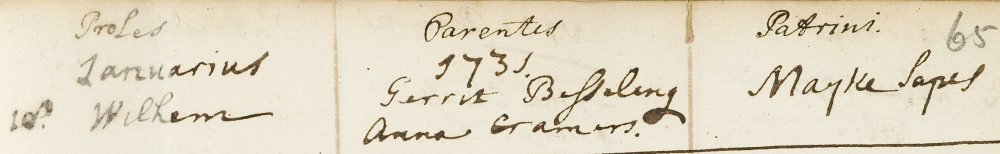 Proles Parentes Patrini. 65
Januarius 1731.
18. Wilhem Gerrit Besseling Mayke Sapes
Anna Cramers.